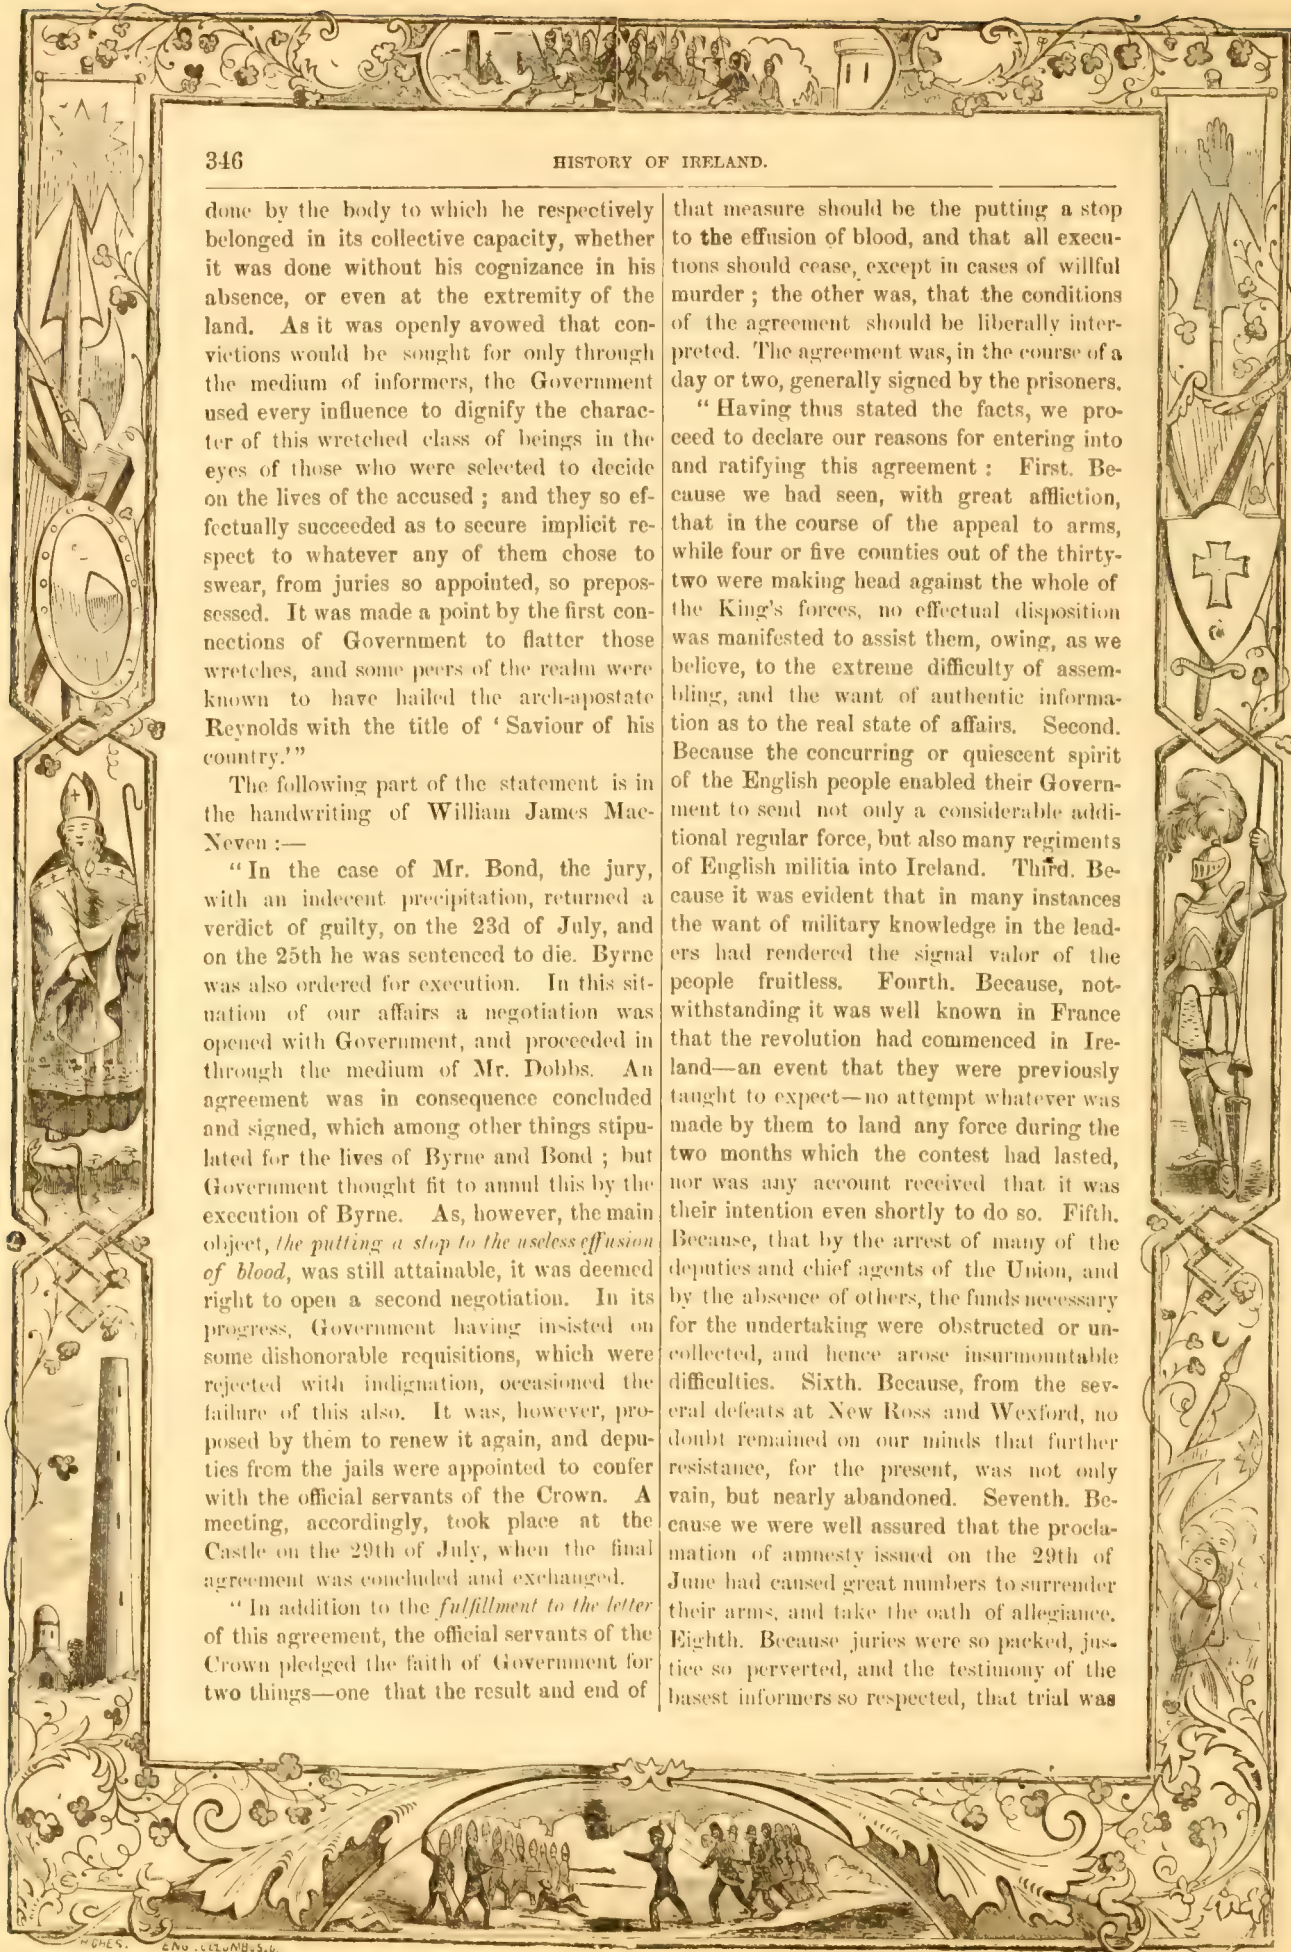 346
HISTORY OF IRELAND.
done by the body to which he respectively
belonged in its collective capacity, whether
it was done without his cognizance in his
absence, or even at the extremity of the
land. As it was openly avowed that con-
victions would be sought for only through
the medium of informers, the Government
used every influence to dignify the charac-
ter of this wretched class of beings in the
eyes of those who were selected to decide
on the lives of the accused ; and they so ef-
fectually succeeded as to secure implicit re-
spect to whatever any of them chose to
swear, from juries so appointed, so prepos-
sessed. It was made a point by the first con-
nections of Government to flatter those
wretches, and some peers of the realm were
known to have hailed the arch-apostate
Reynolds with the title of ‘ Saviour of his
country.’ ”
The following part of the statement is in
the handwriting of William James Mac-
Neven :—
“ In the case of Mr. Bond, the jury,
with an indecent precipitation, returned a
verdict of guilty, on the 23d of July, and
on the 25th he was sentenced to die. Byrne
was also ordered for execution. In this sit-
uation of our affairs a negotiation was
opened with Government, and proceeded in
through the medium of Mr. Dobbs. An
agreement was in consequence concluded
and signed, which among other things stipu-
lated for the lives of Byrne and Bond ; but
Government thought fit to annul this by the
execution of Byrne. As, however, the main
object, the putting a stop to the useless effusion
of blood, was still attainable, it was deemed
right to open a second negotiation. In its
progress, Government having insisted on
some dishonorable requisitions, which were
rejected with indignation, occasioned the
failure of this also. It was, however, pro-
posed by them to renew it again, and depu-
ties from the jails were appointed to confer
with the official servants of the Crown. A
meeting, accordingly, took place at the
Castle on the 29th of July, when the final
agreement was concluded and exchanged.
“ In addition to the fulfillment to the letter
of this agreement, the official servants of the
Crown pledged the faith of Government for
two things—one that the result and end of
that measure should be the putting a stop
to the effusion of blood, and that all execu-
tions should cease, except in cases of willful
murder ; the other was, that the conditions
of the agreement should be liberally inter-
preted. The agreement was, in the course of a
day or two, generally signed by the prisoners.
“ Having thus stated the facts, we pro-
ceed to declare our reasons for entering into
and ratifying this agreement : First. Be-
cause we had seen, with great affliction,
that in the course of the appeal to arms,
while four or five counties out of the thirty-
two were making head against the whole of
the King's forces, no effectual disposition
was manifested to assist them, owing, as we
believe, to the extreme difficulty of assem-
bling, and the want of authentic informa-
tion as to the real state of affairs. Second.
Because the concurring or quiescent spirit
of the English people enabled their Govern-
ment to send not only a considerable addi-
tional regular force, but also many regiments
of English militia into Ireland. Third. Be-
cause it was evident that in many instances
the want of military knowledge in the lead-
ers had rendered the signal valor of the
people fruitless. Fourth. Because, not-
withstanding it was well known in France
that the revolution had commenced in Ire-
land—an event that they were previously
taught to expect—no attempt whatever was
made by them to land any force during the
two months which the contest had lasted,
nor was any account received that it was
their intention even shortly to do so. Fifth.
Because, that by the arrest of many of the
deputies and chief agents of the Union, and
by the absence of others, the funds necessary
for the undertaking were obstructed or un-
collected, and hence arose insurmountable
difficulties. Sixth. Because, from the sev-
eral defeats at New Ross and Wexford, no
doubt remained on our minds that further
resistance, for the present, was not only
vain, but nearly abandoned. Seventh. Be-
cause we were well assured that the procla-
mation of amnesty issued on the 29th of
June had caused great numbers to surrender
their arms, and take the oath of allegiance.
Eighth. Because juries were so packed, jus-
tice so perverted, and the testimony of the
basest informers so respected, that trial was